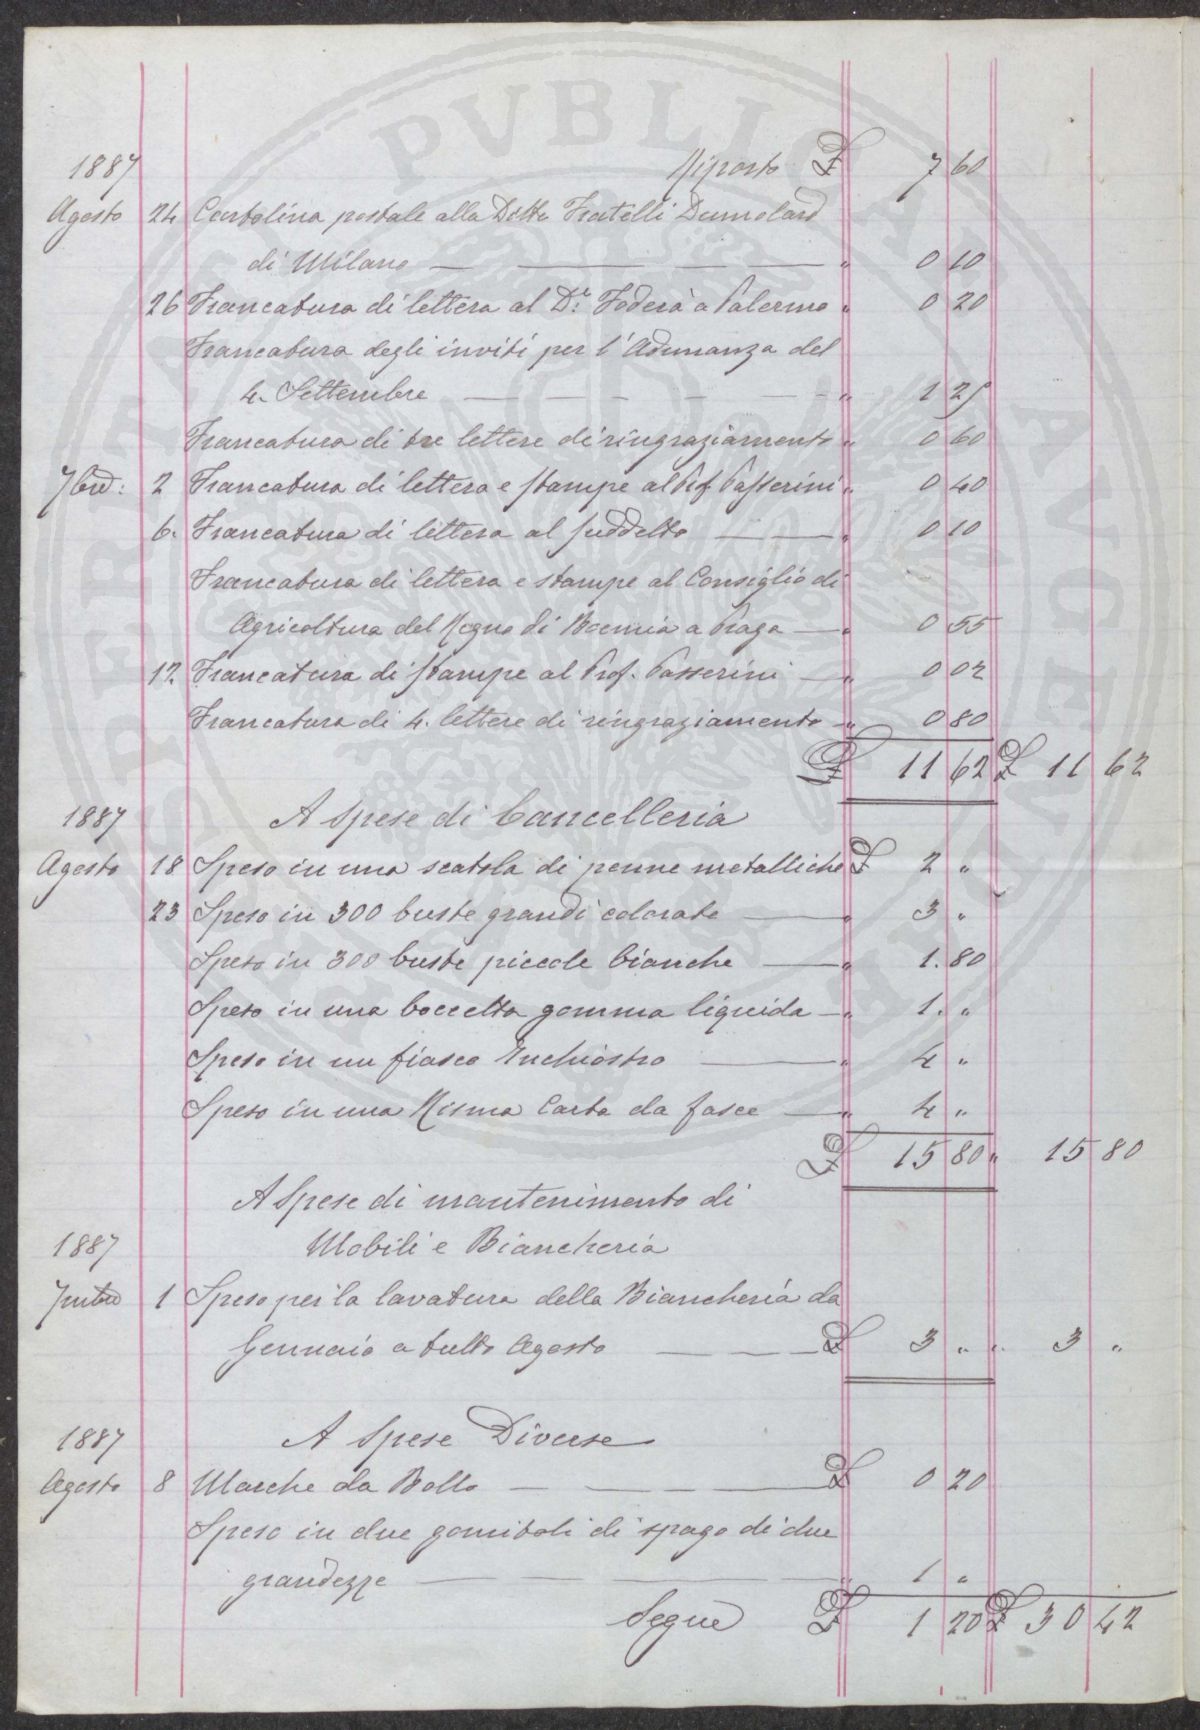 PVBLICAE
1887 Riporto £ 7 60
Agosto 24 Cartolina postale alla Ditta Fratelli Dumolard
di Milano — — — — " 0 10
26 Francatura di lettera al Dr. Foderà a Palermo " 0 20
Francatura degli inviti per l'Adunanza del
4. Settembre — — — — " 1 25
Francatura di tre lettere di ringraziamento " 0 60
7bre: 2 Francatura di lettera e stampe al Prof. Passerini " 0 40
6. Francatura di lettera al suddetto — — " 0 10
Francatura di lettera e stampe al Consiglio di
Agricoltura del Regno di Boemia a Praga — " 0 55
12 Francatura di stampe al Prof. Passerini — " 0 02
Francatura di 4. lettere di ringraziamento — " 0 80
£ 11 62 £ 11 62
1887 A Spese di Cancelleria
Agosto 18 Speso in una scatola di penne metalliche £ 2 "
23 Speso in 300 buste grandi colorate — " 3 "
Speso in 300 buste piccole bianche — " 1. 80
Speso in una boccetta gomma liquida — " 1. "
Speso in un fiasco Inchiostro — " 4 "
Speso in una Risma Carta da fasce — " 4 "
£ 15 80 " 15 80
A Spese di mantenimento di
1887 Mobili e Biancheria
7mbre 1 Speso per la lavatura della Biancheria da
Gennaio a tutto Agosto — — — £ 3 " " 3 "
1887 A Spese Diverse
Agosto 8 Marche da Bollo — — — — £ 0 20
Speso in due gomitoli di spago di due
grandezze — — — — " 1 "
Segue £ 1 20 £ 30 42